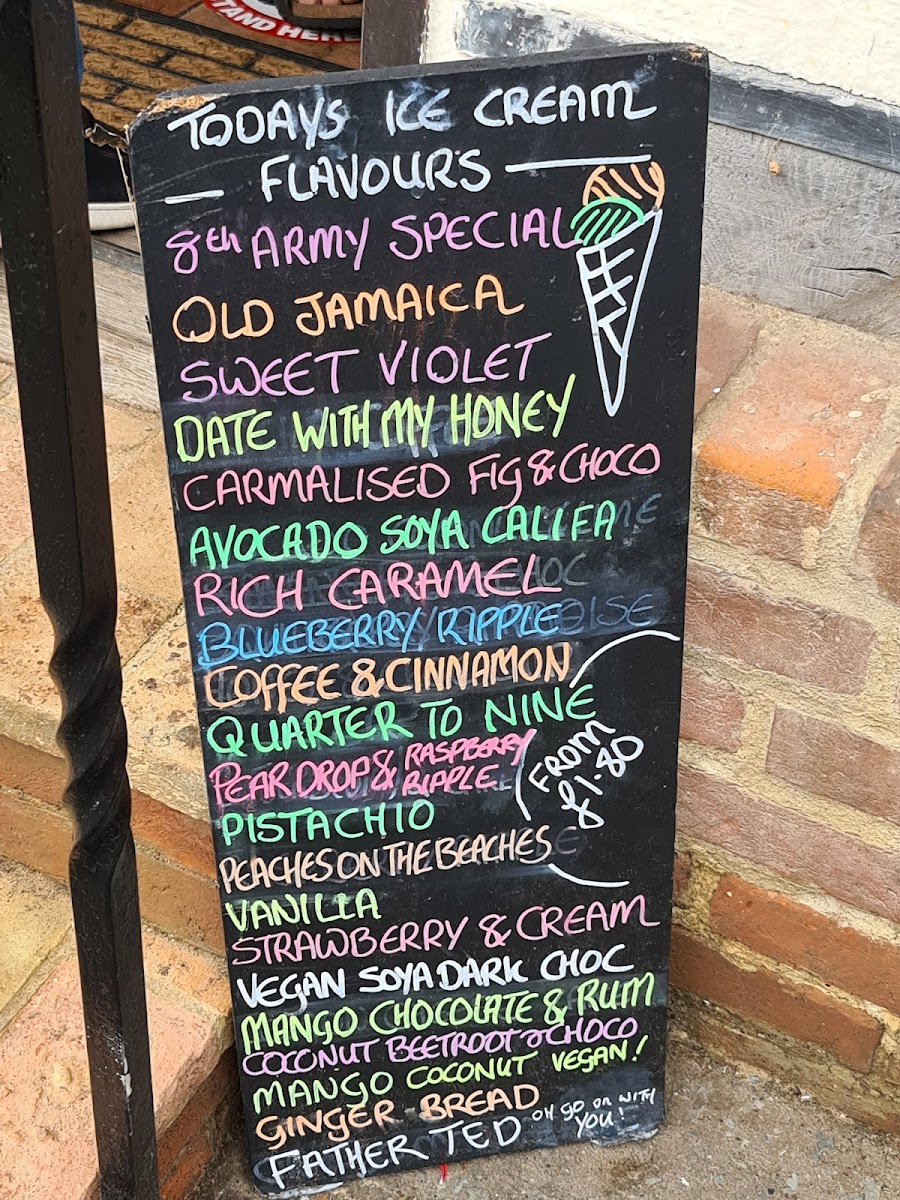 STAND HERE
TODAYS ICE CREAM
FLAVOURS
8th ARMY SPECIAL
OLD JAMAICA
SWEET VIOLET
DATE WITH MY HONEY
CARMALISED FIG & CHOCO
AVOCADO SOYA CALIFA
RICH CARAMEL
BLUEBERRY RIPPLE
COFFEE & CINNAMON
QUARTER TO NINE
PEAR DROP & RASPBERRY
RIPPLE
FROM
£1.80
PISTACHIO
PEACHES ON THE BEACHES
VANILLA
STRAWBERRY & CREAM
VEGAN SOYA DARK CHOC
MANGO CHOCOLATE & RUM
COCONUT BEETROOT & CHOCO
MANGO COCONUT VEGAN!
GINGER BREAD
FATHER TED OH GO ON WITH
YOU!